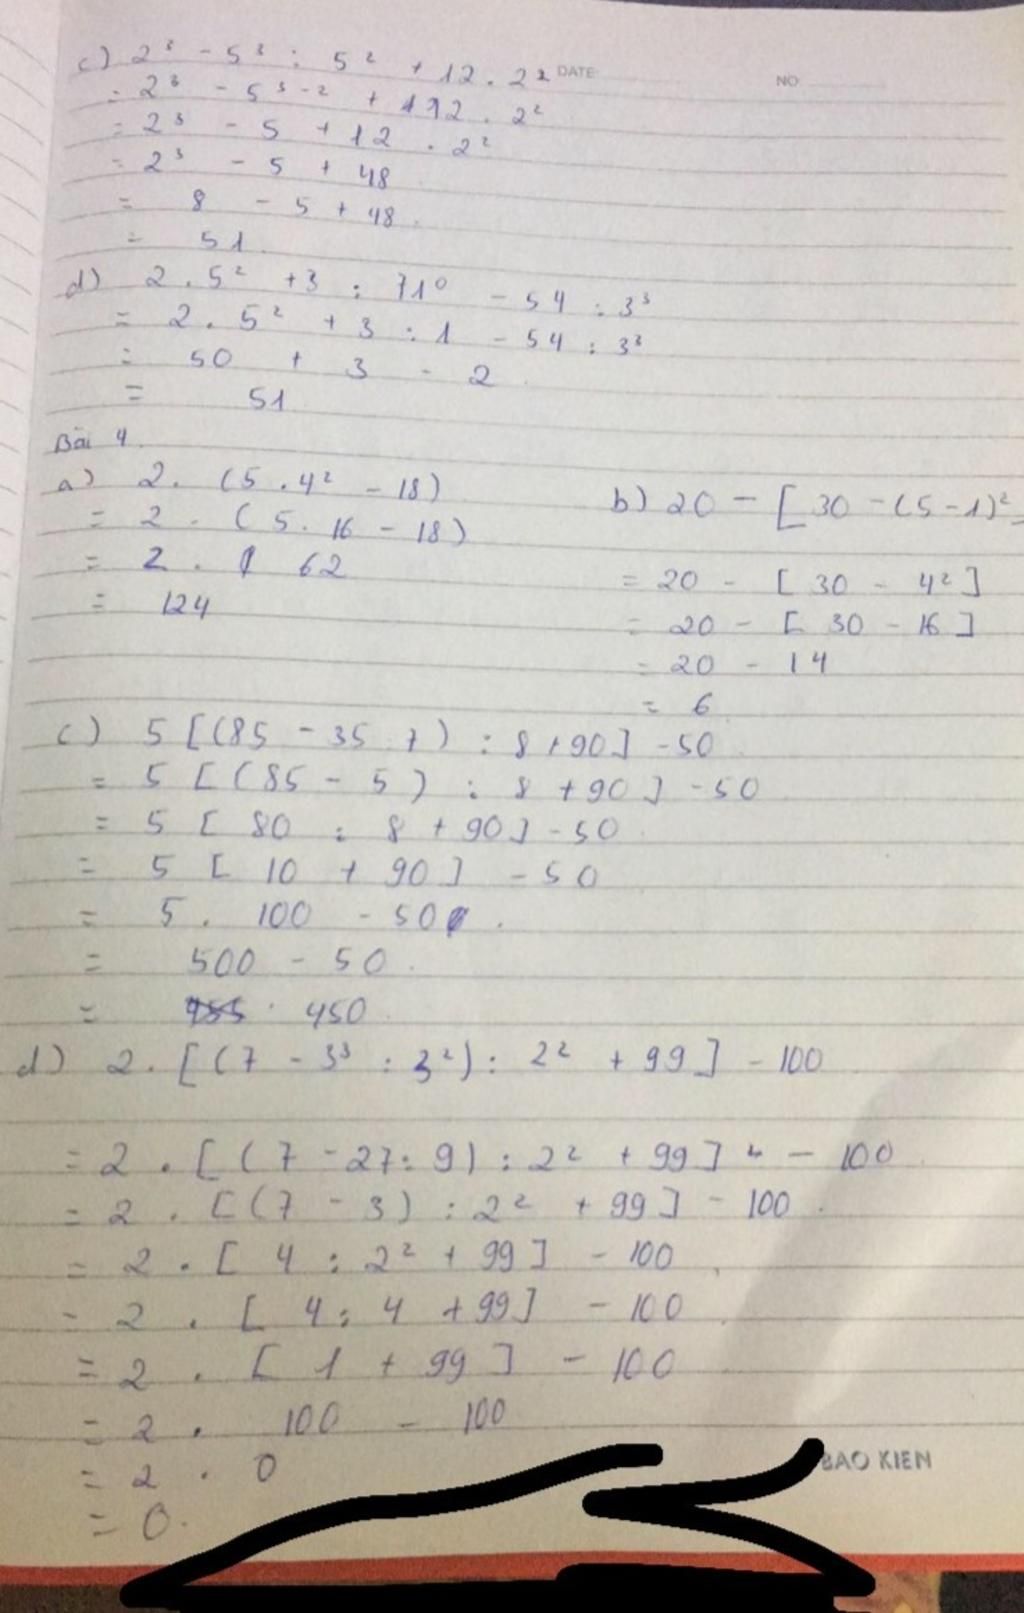 DATE:
NO
c) 2³ - 5³ : 5² + 12 . 2²
= 2³ - 5³⁻² + 192 . 2²
= 2³ - 5 + 12 . 2²
= 2³ - 5 + 48
= 8 - 5 + 48
= 51
d) 2 . 5² + 3 : 71⁰ - 54 : 3³
= 2 . 5² + 3 : 1 - 54 : 3³
= 50 + 3 - 2
= 51
Bài 4
a) 2 . (5 . 4² - 18)
= 2 . (5 . 16 - 18)
= 2 . 62
= 124
b) 20 - [30 - (5 - 1)²
= 20 - [30 - 4²]
= 20 - [30 - 16]
= 20 - 14
= 6
c) 5 [(85 - 35 7) : 8 + 90] - 50
= 5 [(85 - 5) : 8 + 90] - 50
= 5 [80 : 8 + 90] - 50
= 5 [10 + 90] - 50
= 5 . 100 - 50
= 500 - 50
= 450
d) 2 . [(7 - 3³ : 3²) : 2² + 99] - 100
= 2 . [(7 - 27 : 9) : 2² + 99] - 100
= 2 . [(7 - 3) : 2² + 99] - 100
= 2 . [4 : 2² + 99] - 100
= 2 . [4 : 4 + 99] - 100
= 2 . [1 + 99] - 100
= 2 . 100 - 100
= 2 . 0
= 0
BAO KIEN